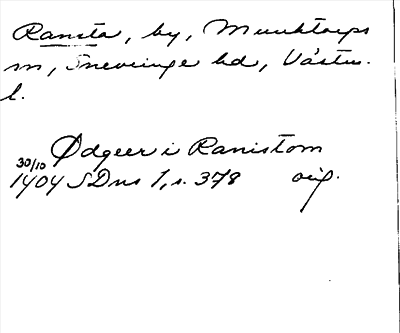 Ransta, by, Munktorps
sn, Snevringe hd, Västm.
l.
Ødgeer i Ranistom
30/10
1404 SDns 1, s. 378 orig.